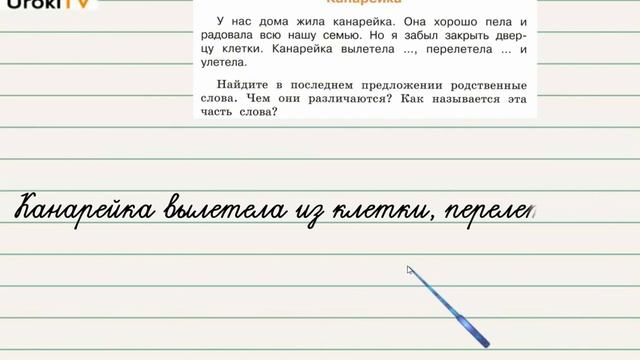 UrokiTV
Канарейка
У нас дома жила канарейка. Она хорошо пела и
радовала всю нашу семью. Но я забыл закрыть двер-
цу клетки. Канарейка вылетела ..., перелетела ... и
улетела.
Найдите в последнем предложении родственные
слова. Чем они различаются? Как называется эта
часть слова?
Канарейка вылетела из клетки, перелет